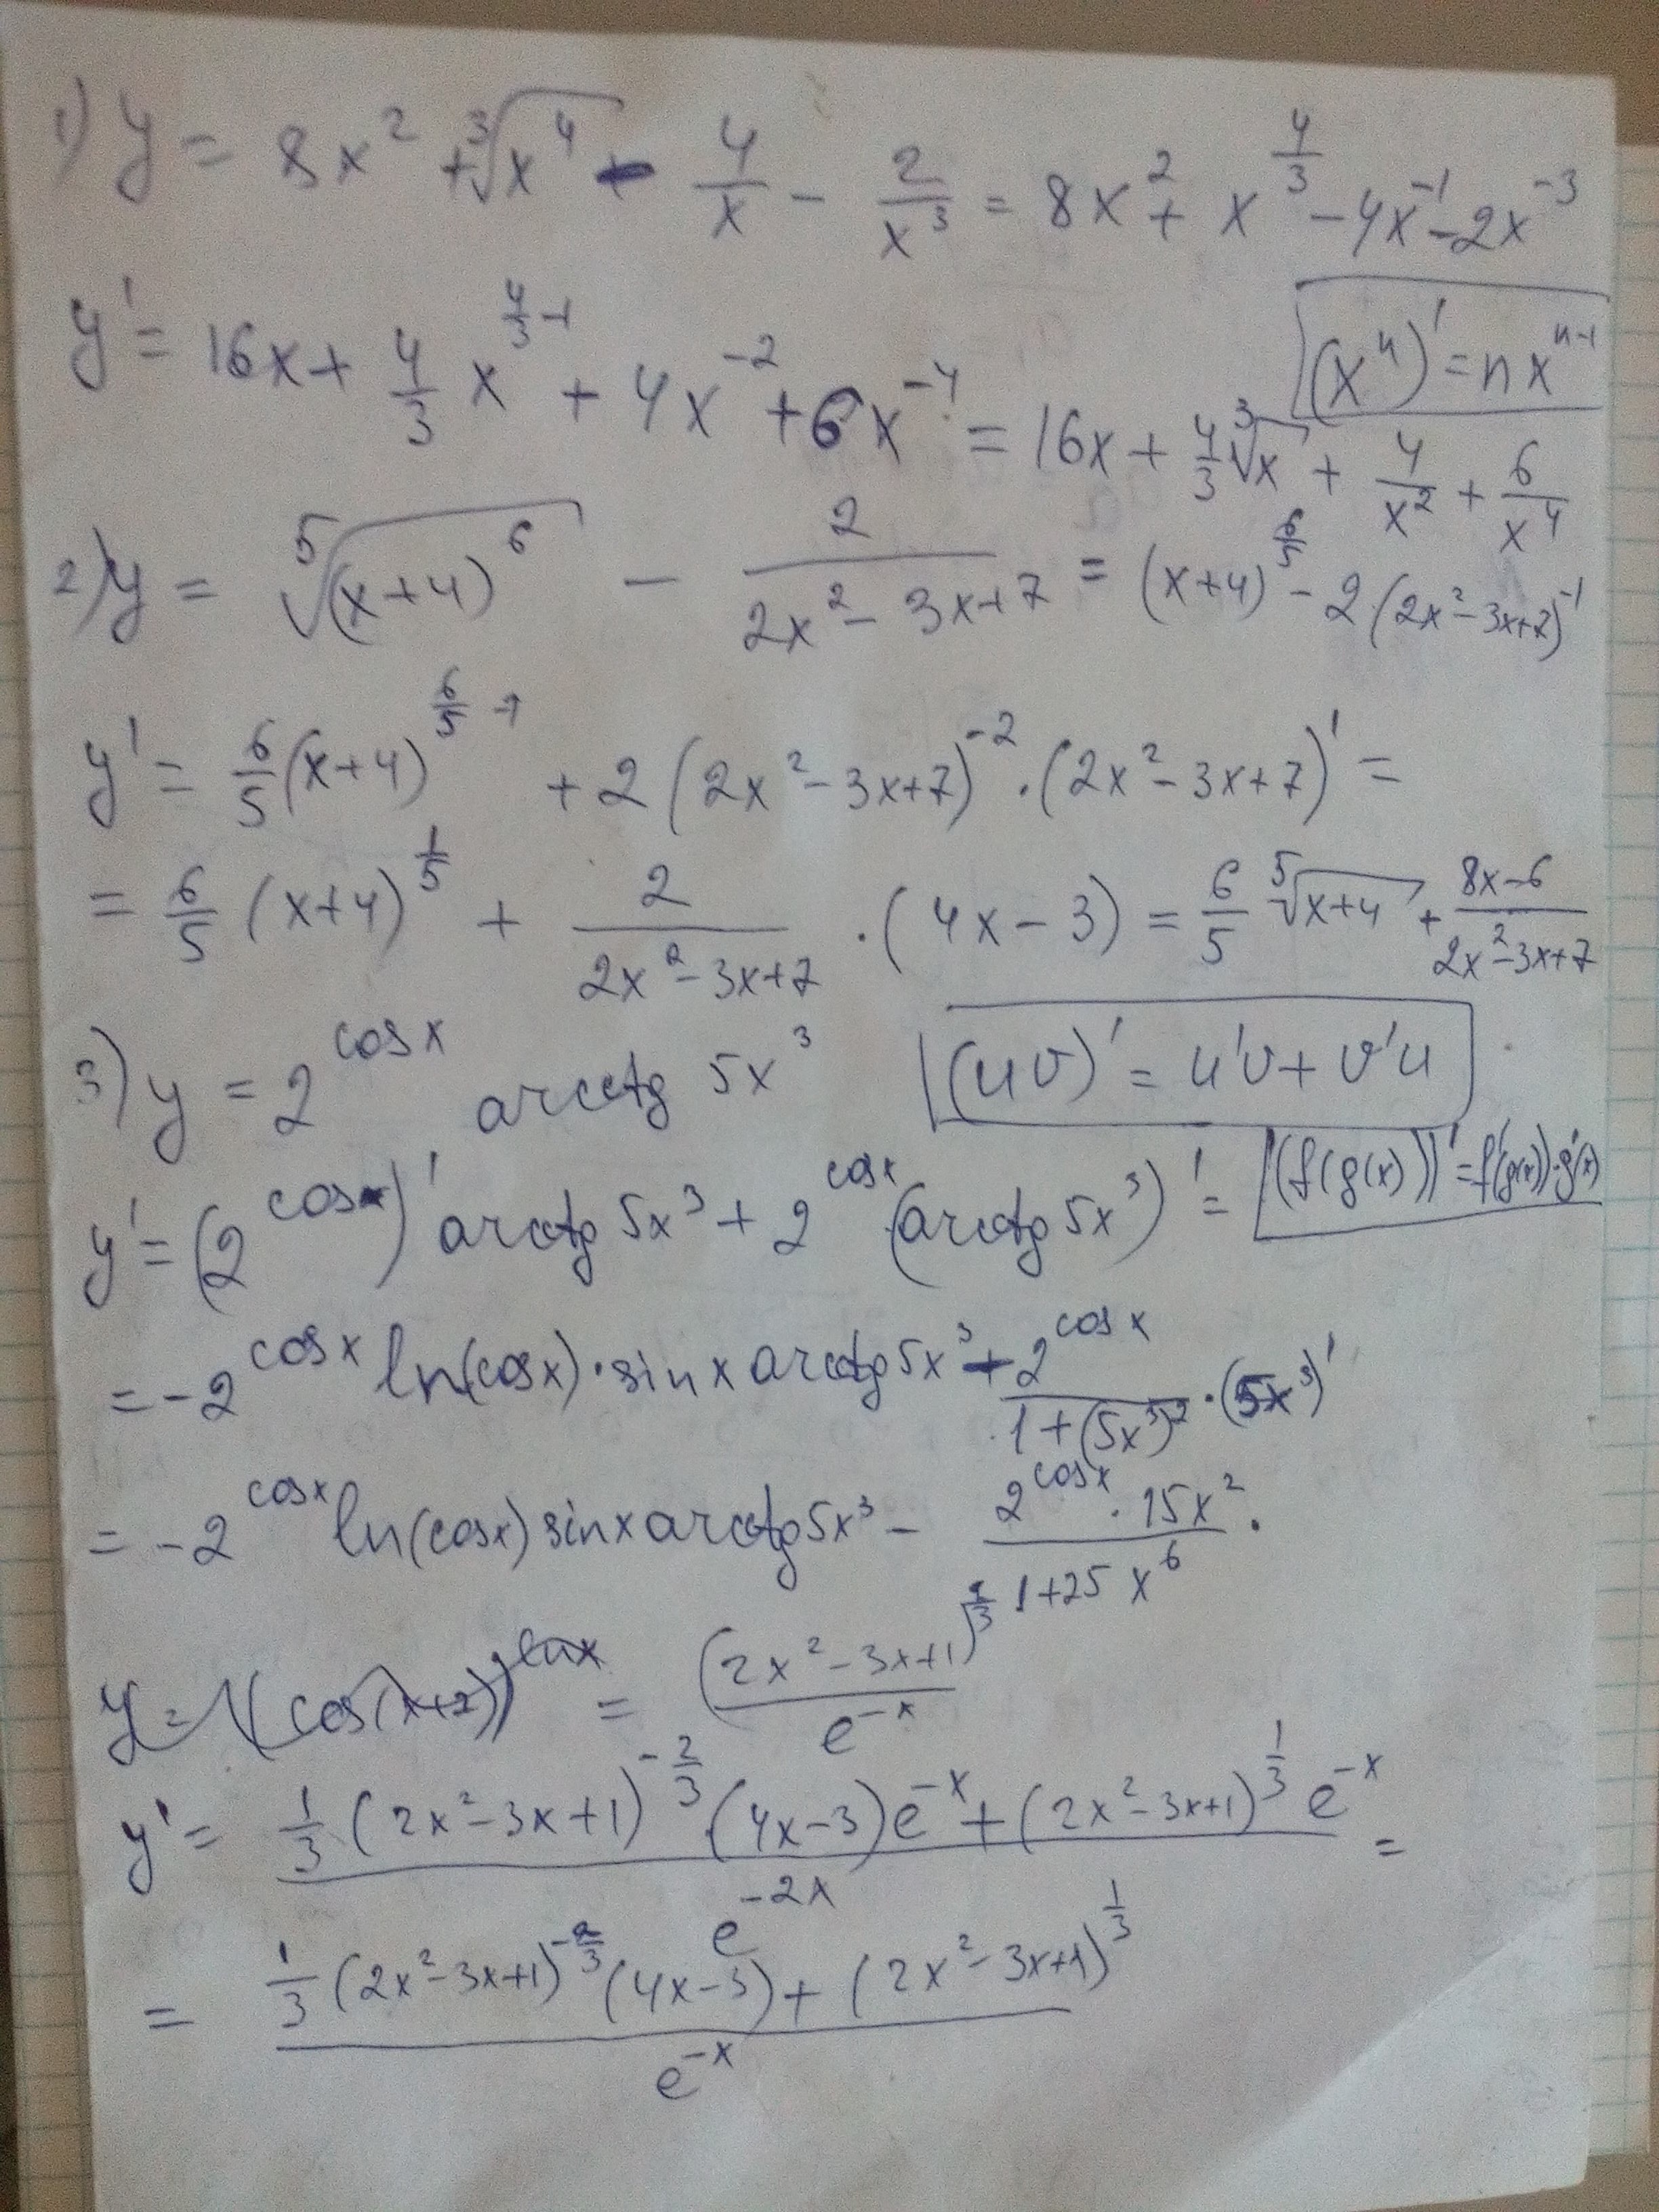 1) y = 8x² + ∛(x⁴) - 4/x - 2/x³ = 8x² + x^(4/3) - 4x⁻¹ - 2x⁻³
(xⁿ)' = nxⁿ⁻¹
y' = 16x + 4/3 x^(4/3-1) + 4x⁻² + 6x⁻⁴ = 16x + 4/3 ∛x + 4/x² + 6/x⁴
2) y = ⁵√((x+4)⁶) - 2/(2x²-3x+7) = (x+4)^(6/5) - 2(2x²-3x+7)⁻¹
y' = 6/5 (x+4)^(6/5-1) + 2(2x²-3x+7)⁻² · (2x²-3x+7)' =
= 6/5 (x+4)^(1/5) + 2/(2x²-3x+7) · (4x-3) = 6/5 ⁵√(x+4) + (8x-6)/(2x²-3x+7)
3) y = 2^(cosx) arcctg 5x³
(uv)' = u'v + v'u
y' = (2^(cosx))' arcctg 5x³ + 2^(cosx) (arcctg 5x³)' =
(f(g(x)))' = f'(g(x))·g'(x)
= -2^(cosx) ln(cosx)·sinx arcctg 5x³ - 2^(cosx)/(1+(5x³)²) · (5x³)'
= -2^(cosx) ln(cosx) sinx arcctg 5x³ - (2^(cosx) · 15x²)/(1+25x⁶) .
y = (cos(x+2))^(lnx) = (2x²-3x+1)^(1/3)/e⁻ˣ
y' = (1/3 (2x²-3x+1)^(-2/3) · (4x-3)e⁻ˣ + (2x²-3x+1)^(1/3) e⁻ˣ)/e⁻²ˣ =
= (1/3 (2x²-3x+1)^(-2/3) (4x-3) + (2x²-3x+1)^(1/3))/e⁻ˣ